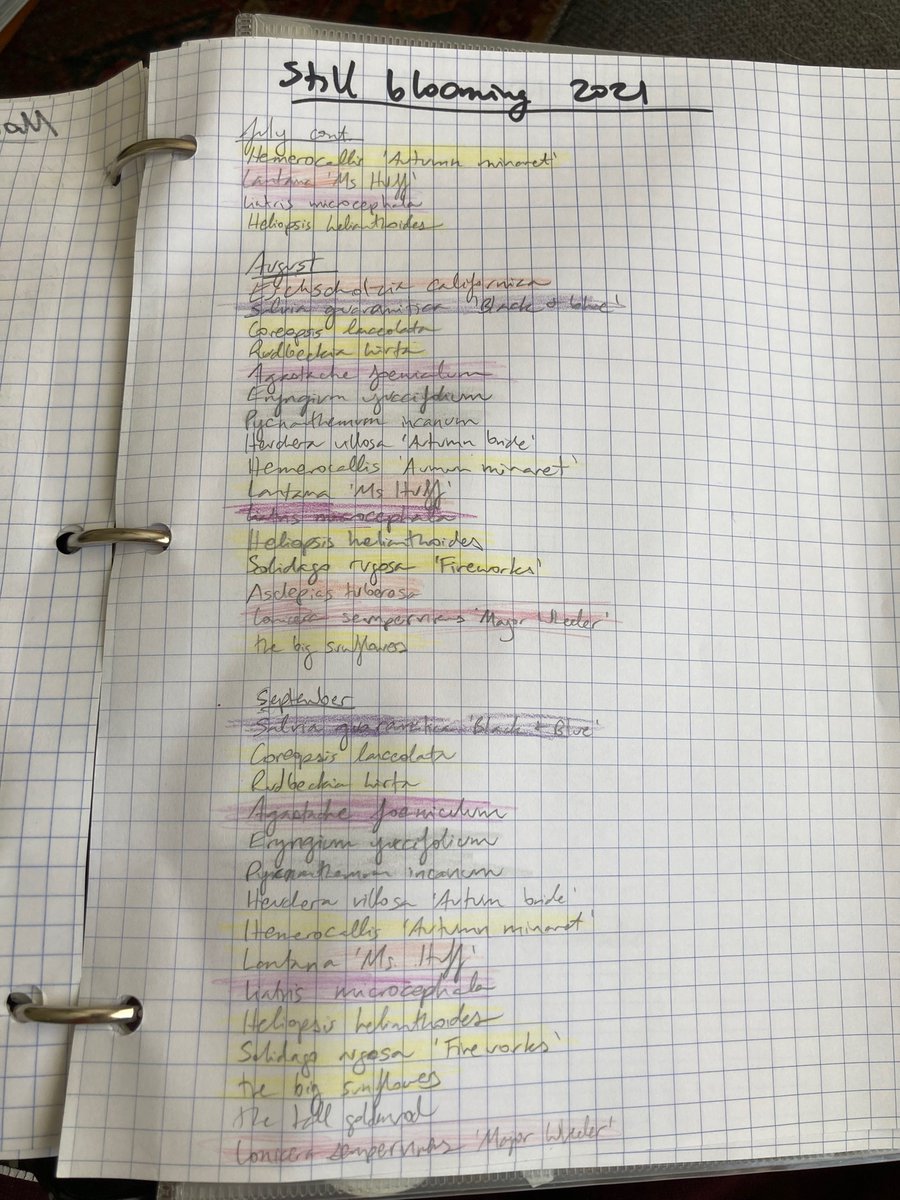 Still blooming 2021
July cont
Hemerocallis 'Autumn minaret'
Lantana 'Ms Huff'
Liatris microcephala
Heliopsis helianthoides
August
Eschscholzia californica
Salvia guaranitica 'Black & blue'
Coreopsis lanceolata
Rudbeckia hirta
Agastache foeniculum
Eryngium yuccifolium
Pycnanthemum incanum
villosa 'Autumn bride'
Hemerocallis minaret'
Lantana 'Ms Huff'
Liatris microcephala
Heliopsis helianthoides
Solidago rugosa 'Fireworks'
Asclepias tuberosa
Lonicera sempervirens 'Major Wheeler'
the big sunflowers
September
Salvia guaranitica 'Black & Blue'
Coreopsis lanceolata
Rudbeckia hirta
Agastache foeniculum
Eryngium yuccifolium
Pycnanthemum incanum
villosa 'Autum bride'
Hemerocallis 'Autumn minaret'
Lantana 'Ms. Huff'
Liatris microcephala
Heliopsis helianthoides
Solidago rugosa 'Fireworks'
the big sunflowers
the tall goldenrod
Lonicera sempervirens 'Major Wheeler'